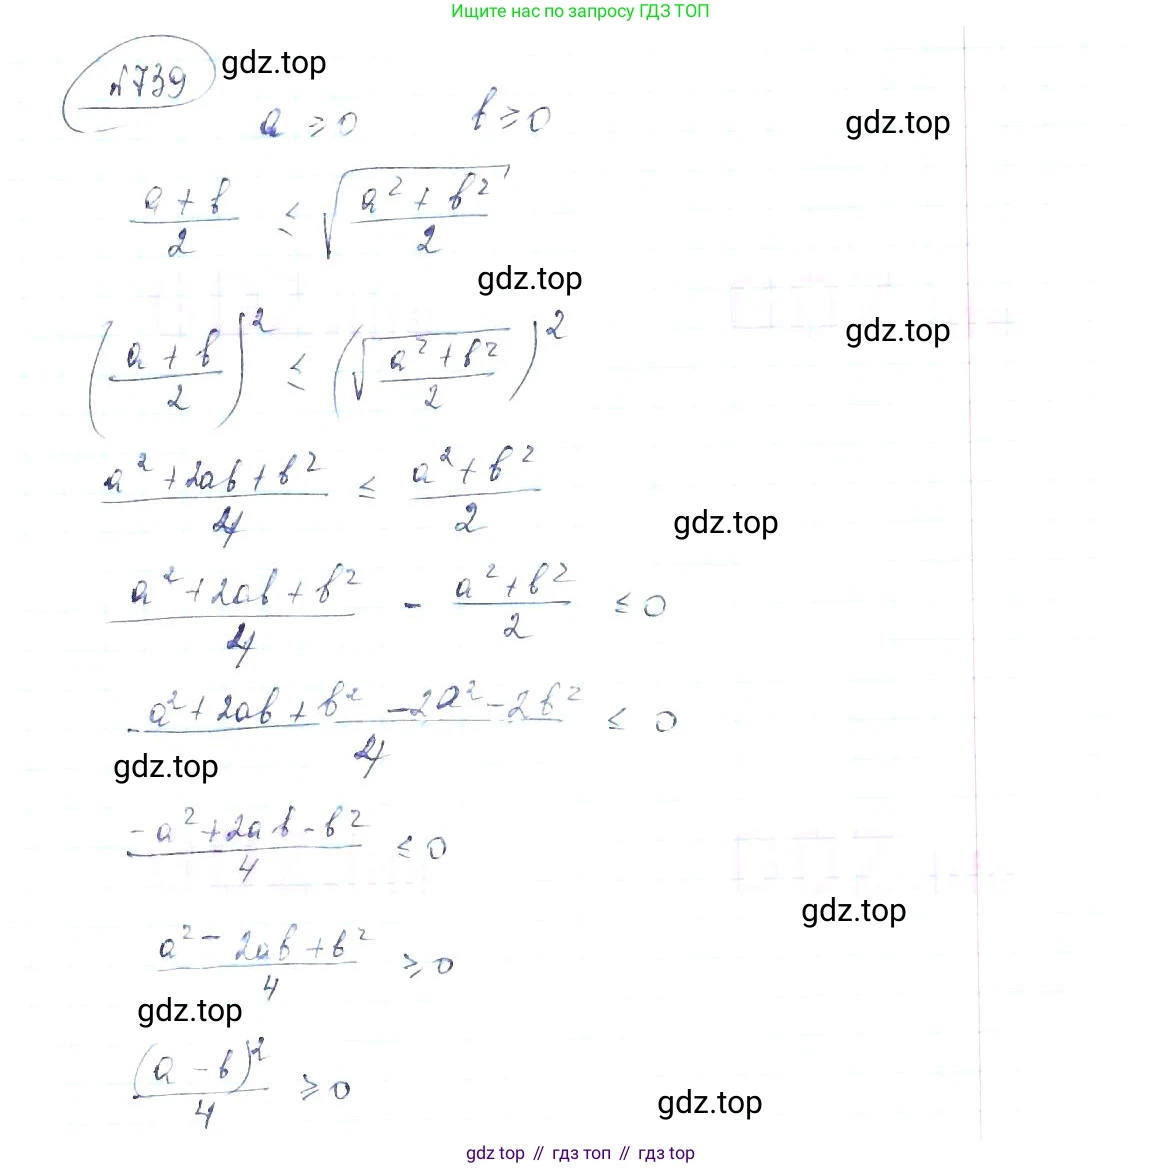 Ищите нас по запросу ГДЗ ТОП
№739 gdz.top
a ≥ 0 b ≥ 0 gdz.top
(a + b)/2 ≤ √((a² + b²)/2)
gdz.top
gdz.top
((a + b)/2)² ≤ (√((a² + b²)/2))²
(a² + 2ab + b²)/4 ≤ (a² + b²)/2
gdz.top
(a² + 2ab + b²)/4 - (a² + b²)/2 ≤ 0
(a² + 2ab + b² - 2a² - 2b²)/4 ≤ 0
gdz.top
(-a² + 2ab - b²)/4 ≤ 0
gdz.top
(a² - 2ab + b²)/4 ≥ 0
gdz.top
(a - b)²/4 ≥ 0
gdz.top
gdz.top // гдз топ // гдз.топ